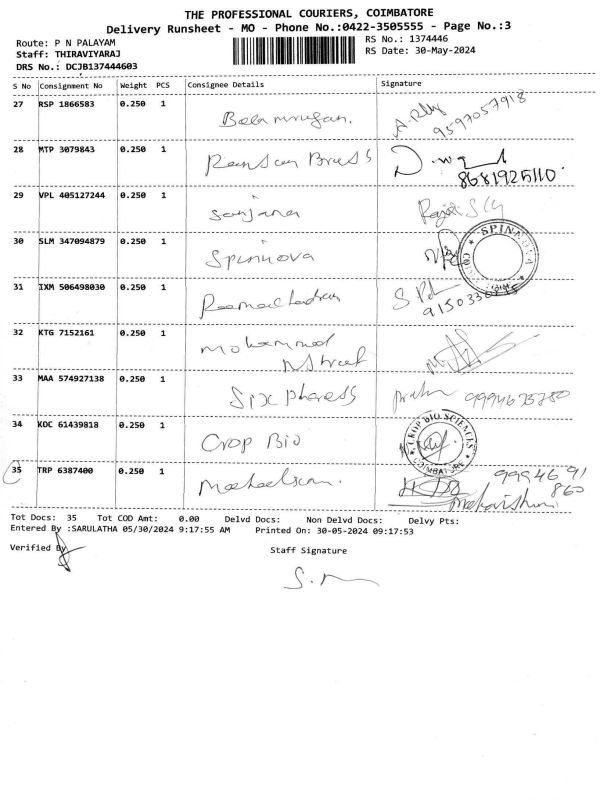 THE PROFESSIONAL COURIERS, COIMBATORE
Delivery Runsheet - MO - Phone No.:0422-3505555 - Page No.:3
Route: P N PALAYAM
RS No.: 1374446
Staff: THIRAVIYARAJ
RS Date: 30-May-2024
DRS No.: DCJB137444603
S No Consignment No Weight PCS Consignee Details Signature
27 RSP 1866583 0.250 1 Balamurugan. 9597057918
28 MTP 3079843 0.250 1 8681925110
29 VPL 405127244 0.250 1 Sanjana
30 SLM 347094879 0.250 1 Spinnova
31 IXM 506498030 0.250 1 Ramachandran
32 KTG 7152161 0.250 1 Mohammed
33 MAA 574927138 0.250 1 Six Pharess
34 KDC 61439818 0.250 1 Crop Bio CROP BIO SCIENCES COIMBATORE
35 TRP 6387400 0.250 1 99946 91
860
Tot Docs: 35 Tot COD Amt: 0.00 Delvd Docs: Non Delvd Docs: Delvy Pts:
Entered By :SARULATHA 05/30/2024 9:17:55 AM Printed On: 30-05-2024 09:17:53
Verified By
Staff Signature